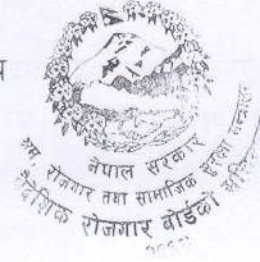 नेपाल सरकार
श्रम रोजगार तथा सामाजिक सुरक्षा मन्त्रालय
वैदेशिक रोजगार बोर्डको